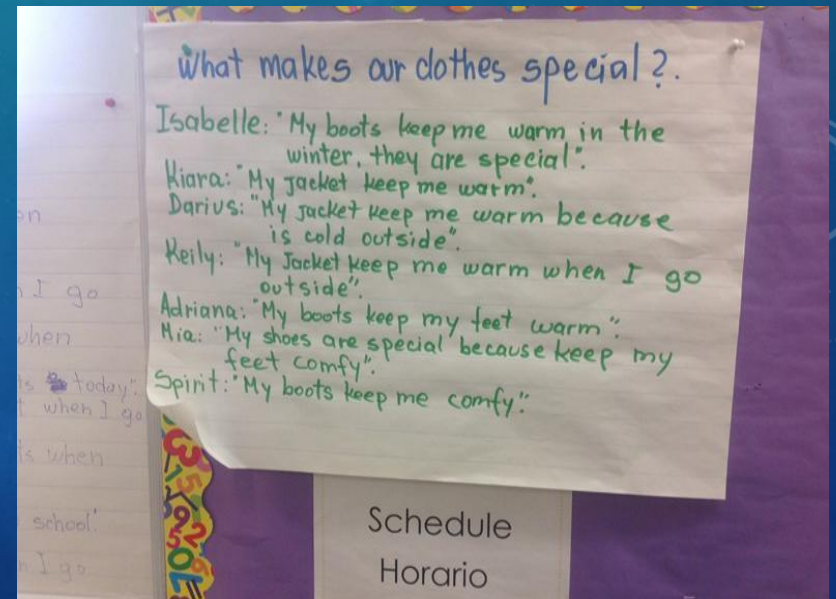 what makes our clothes special?.
Isabelle: "My boots keep me warm in the
winter, they are special".
Kiara: "My jacket keep me warm".
Darius: "My jacket keep me warm because
is cold outside".
Keily: "My Jacket keep me warm when I go
outside".
Adriana: "My boots keep my feet warm".
Mia: "My shoes are special because keep my
feet comfy".
Spirit: "My boots keep me comfy".
Schedule
Horario
on
I go
when
today".
when I go
when
school".
I go